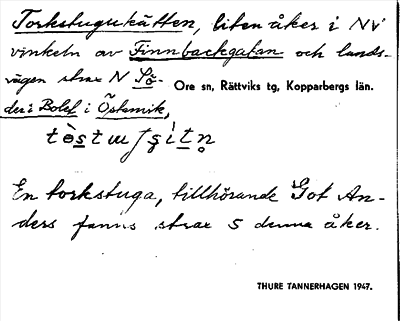 Torkstugukätten, liten åker i NV
vinkeln av Finnbackgatan och lands-
vägen strax N Sö-
Ore sn, Rättviks tg, Kopparbergs län.
der i Bolet i Östanvik,
En torkstuga, tillhörande Got An-
ders fanns strax S denna åker.
THURE TANNERHAGEN 1947.